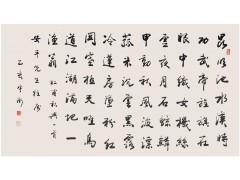 昆明池水漢時
功武帝旌旗在
眼中織女機絲
虛夜月石鯨鱗
甲動秋風波漂
菰米沉雲黑露
冷蓮房墜粉紅
關塞極天唯鳥
道江湖滿地一
漁翁
安平先生